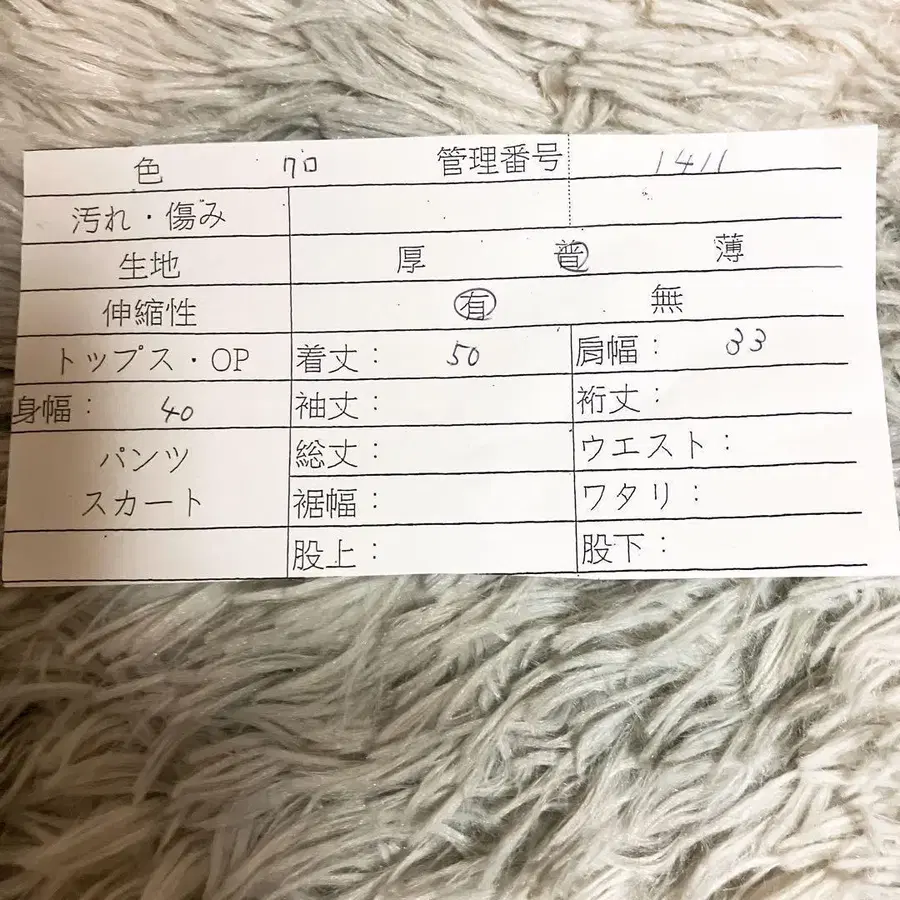 色 クロ 管理番号 1411
汚れ・傷み
生地 厚 普 薄
伸縮性 有 無
トップス・OP 着丈： 50 肩幅： 33
身幅： 40 袖丈： 裄丈：
パンツ 総丈： ウエスト：
スカート 裾幅： ワタリ：
股上： 股下：